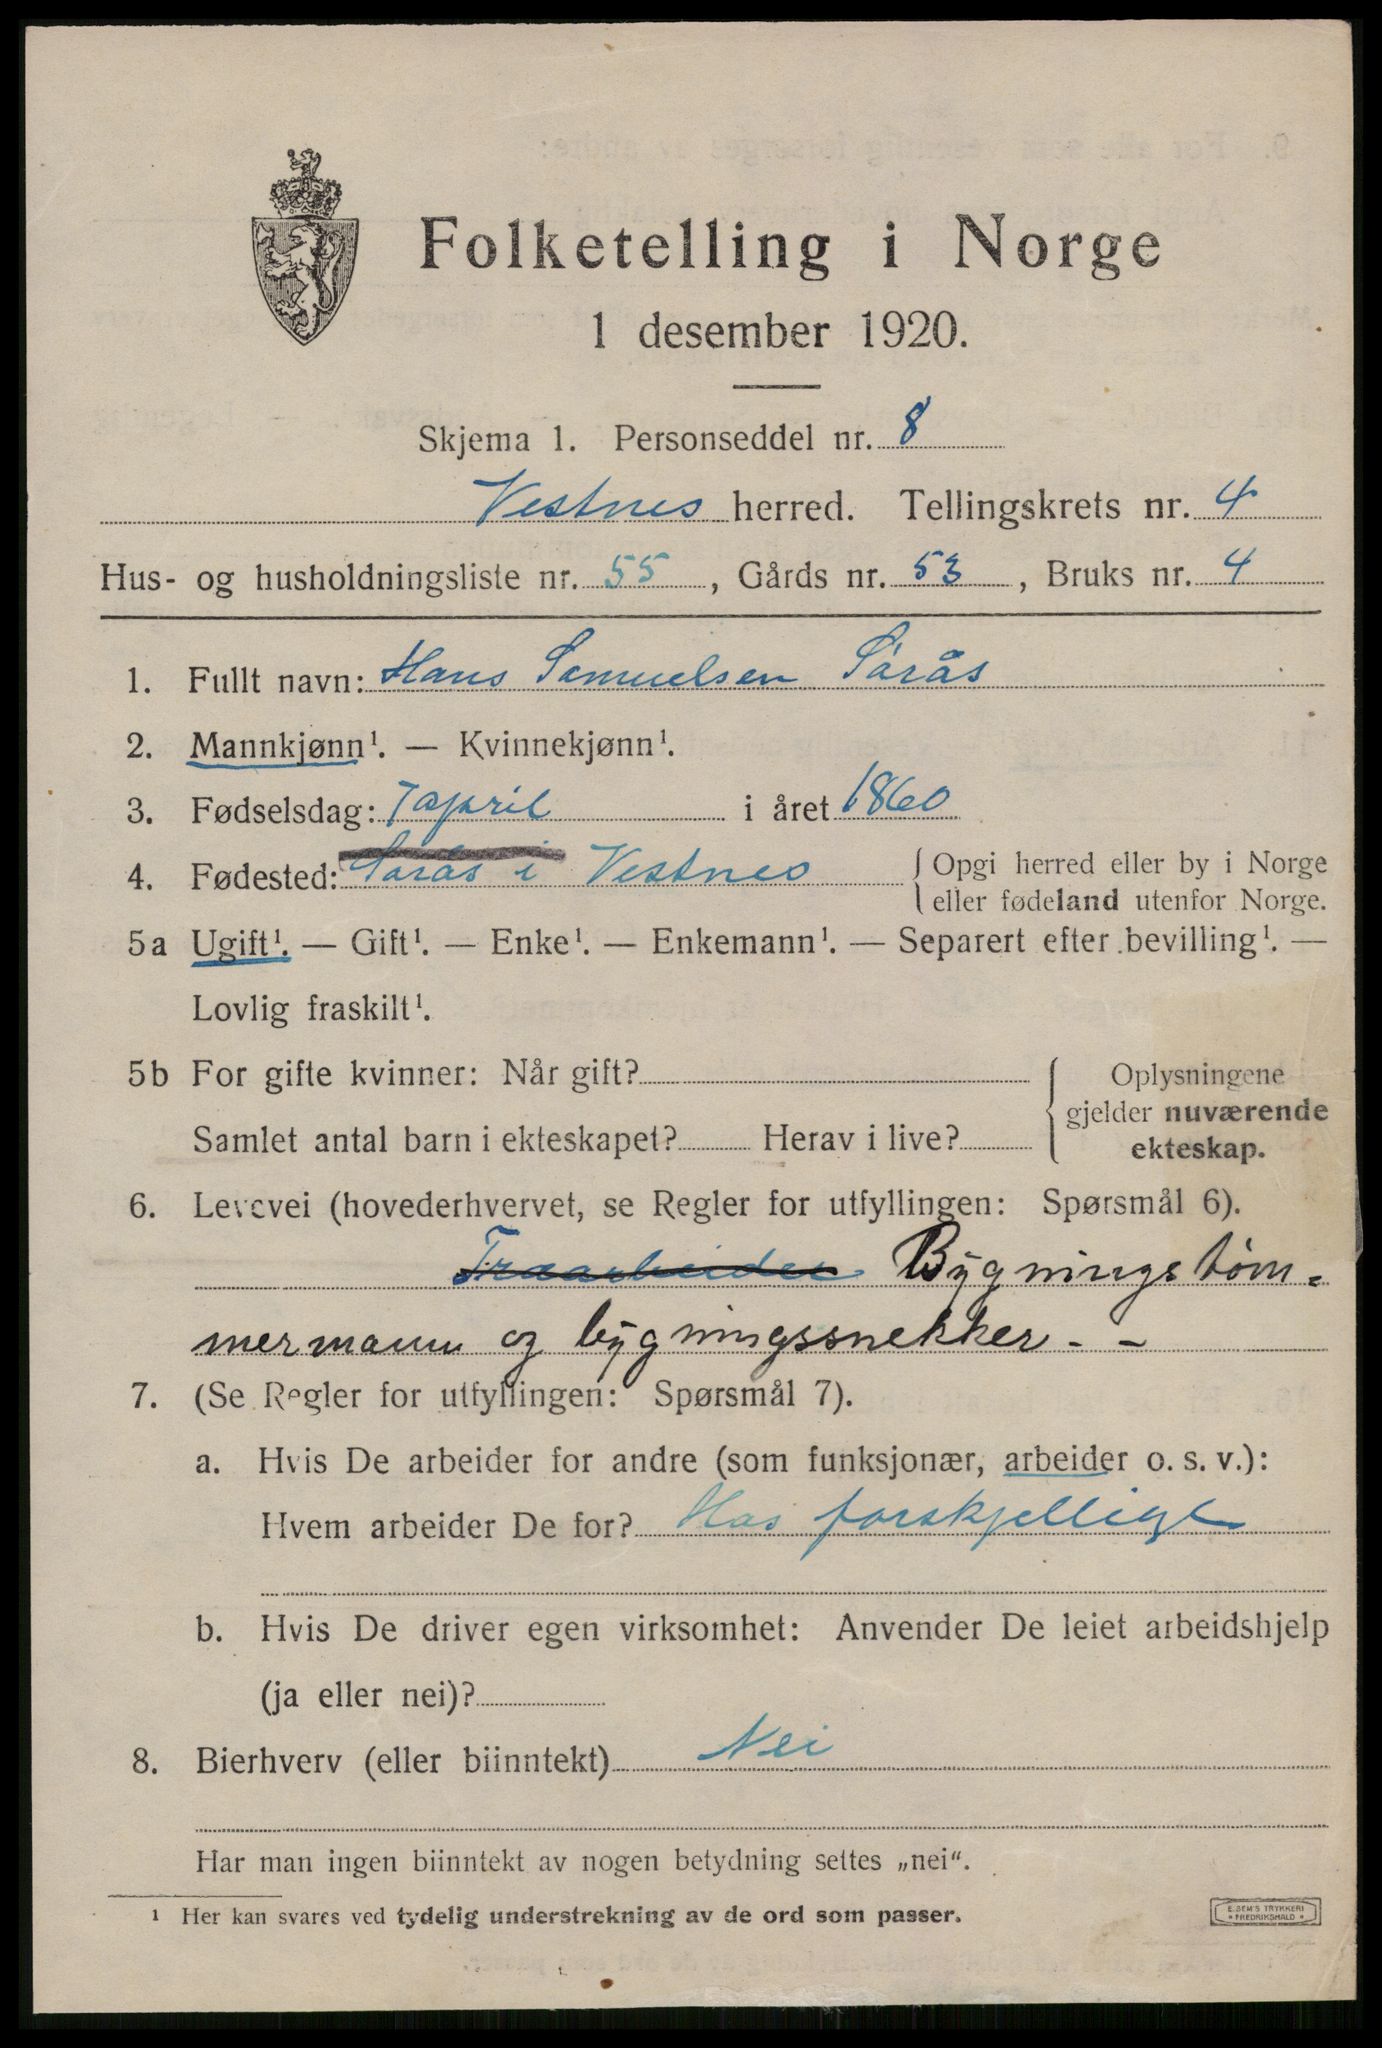 Folketelling i Norge
1 desember 1920.
Skjema 1. Personseddel nr. 8
Vestnes herred. Tellingskrets nr. 4
Hus- og husholdningsliste nr. 55, Gårds nr. 53, Bruks nr. 4
1. Fullt navn: Hans Samuelsen Sørås
2. Mannkjønn¹. — Kvinnekjønn¹.
3. Fødselsdag: 7 april i året 1860
4. Fødested: Sørås i Vestnes { Opgi herred eller by i Norge
eller fødeland utenfor Norge.
5a Ugift¹. — Gift¹. — Enke¹. — Enkemann¹. — Separert efter bevilling¹. —
Lovlig fraskilt¹.
5b For gifte kvinner: Når gift?
Samlet antal barn i ekteskapet? Herav i live?
Oplysningene
gjelder nuværende
ekteskap.
6. Levevei (hovederhvervet, se Regler for utfyllingen: Spørsmål 6).
Træarbeider Bygningstøm-
mermann og bygningssnekker. -
7. (Se Regler for utfyllingen: Spørsmål 7).
a. Hvis De arbeider for andre (som funksjonær, arbeider o. s. v.):
Hvem arbeider De for? Hos forskjellige
b. Hvis De driver egen virksomhet: Anvender De leiet arbeidshjelp
(ja eller nei)?
8. Bierhverv (eller biinntekt) Nei
Har man ingen biinntekt av nogen betydning settes „nei“.
¹ Her kan svares ved tydelig understrekning av de ord som passer.
E. SEM'S TRYKKERI
FREDRIKSHALD